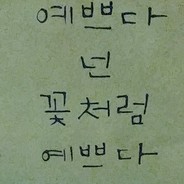 예쁘다
넌
꽃처럼
예쁘다